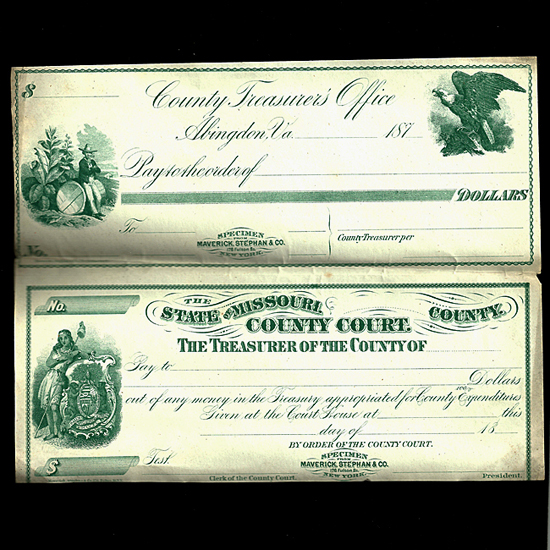 $
County Treasurer's Office
Abingdon, Va. 187
Pay to the order of
DOLLARS
To
SPECIMEN
FROM
MAVERICK, STEPHAN & CO.
178 Fulton St.
NEW YORK.
County Treasurer per
No.
No.
THE
STATE OF MISSOURI, COUNTY.
COUNTY COURT.
THE TREASURER OF THE COUNTY OF
Pay to
Dollars
out of any money in the Treasury appropriated for County Expenditures
Given at the Court House at this
day of 18
BY ORDER OF THE COUNTY COURT.
$
Test.
SPECIMEN
FROM
MAVERICK, STEPHAN & CO.
178 Fulton St.
NEW YORK.
Clerk of the County Court.
President.